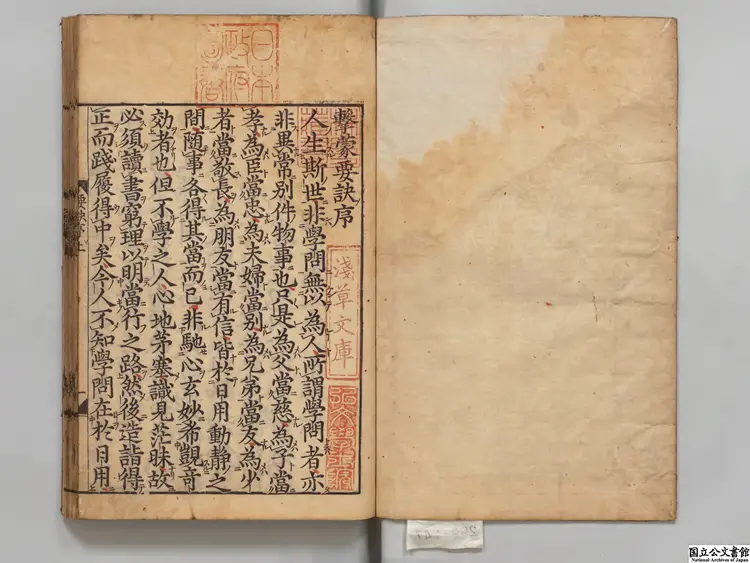 擊蒙要訣序
人生斯世非學問無以為人所謂學問者亦
非異常別件物事也只是為父當慈為子當
孝為臣當忠為夫婦當別為兄弟當友為少
者當敬長為朋友當有信皆於日用動靜之
間隨事各得其當而已非馳心玄妙希覬奇
効者也但不學之人心地茅塞識見茫昧故
必須讀書窮理以明當行之路然後造詣得
正而踐履得中矣今人不知學問在於日用
日本
政府
圖書
淺草文庫
国立公文書館
National Archives of Japan